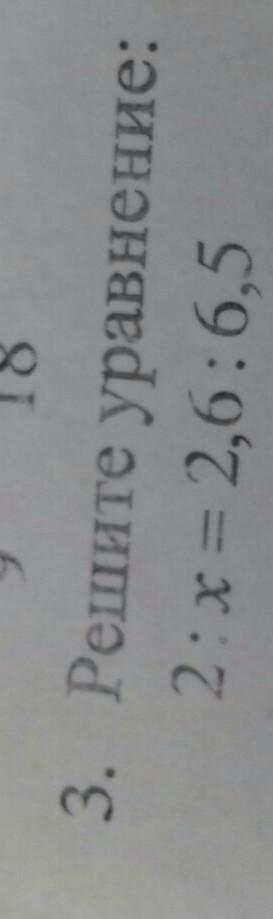 18
3. Решите уравнение:
2 : x = 2,6 : 6,5